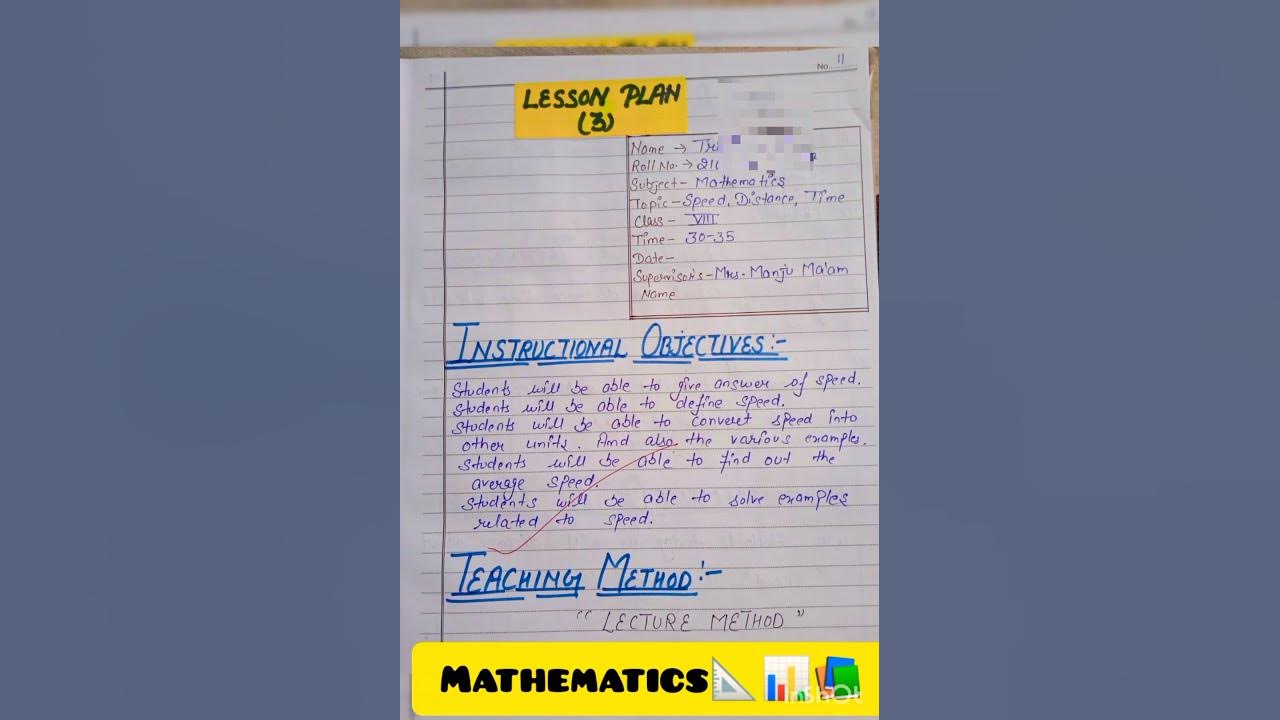 No. 11
LESSON PLAN
(3)
Name → Tri
Roll No. → 211
Subject - Mathematics
Topic - Speed, Distance, Time
Class - VIII
Time - 30-35
Date -
Supervisor's - Mrs. Manju Ma'am
Name
INSTRUCTIONAL OBJECTIVES:-
Students will be able to give answer of speed.
Students will be able to define speed.
Students will be able to convert speed into
other units. And also the various examples.
Students will be able to find out the
average speed.
Students will be able to solve examples
related to speed.
TEACHING METHOD:-
"LECTURE METHOD"
MATHEMATICS
InShOt